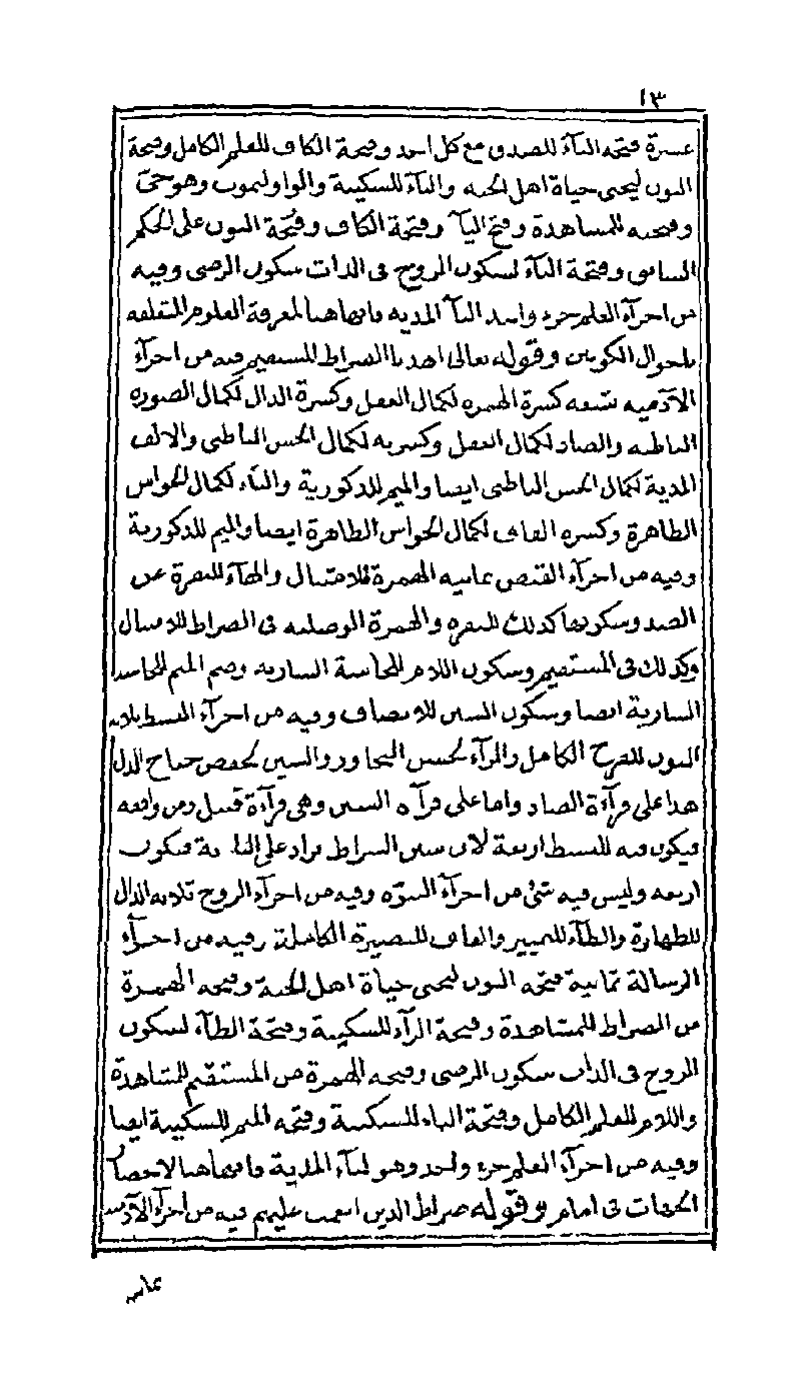 ١٣
عشرة فتحة التاء للصدق مع كل احد وفتحة الكاف للعلم الكامل وفتحة
النون ليحيى حياة اهل الجنة والياء للسكينة والواو ليموت وهو حيّ
وفتحته للمشاهدة وفتح اليا وفتحة الكاف وفتحة النون على الحكم
السابق وفتحة التاء لسكون الروح فى الذات سكون الرضى وفيه
من اجزآء العلم جزء واحد اليآ المدية فانها هنا لمعرفة العلوم المتعلقة
باحوال الكونين وقوله تعالى اهدنا الصراط المستقيم فيه من اجزآء
الآدمية تسعة كسرة الهمزة لكمال العقل وكسرة الدال لكمال الصورة
الباطنة والصاد لكمال العقل وكسرته لكمال الحس الباطنى والالف
المدية لكمال الحس الباطنى ايضا والميم للذكورية والتاء لكمال الحواس
الظاهرة وكسرة القاف لكمال الحواس الظاهرة ايضا والميم للذكورية
وفيه من اجزآء القبض ثمانية الهمزة للامتثال والهآء للنفرة عن
الضد وسكونها كذلك للنفرة والهمزة الوصلية فى الصراط للامتثال
وكذلك فى المستقيم وسكون اللام للحاسة السارية وضم الميم للحاسة
السارية ايضا وسكون السين للانصاف وفيه من اجزآء البسط ثلاثة
النون للفرح الكامل والرآء لحسن التجاوز والسين لخفض جناح الذل
هذا على قرآءة الصاد واما على قرآة السين وهى قرآءة قنبل ومن وافقه
فيكون فيه للبسط اربعة لان سين السراط تزاد على الثلاثة فتكون
اربعة وليس فيه شئ من اجزآء النبوّة وفيه من اجزآء الروح ثلاثة الدال
للطهارة والطآء للتمييز والقاف للبصيرة الكاملة وفيه من اجزآء
الرسالة ثمانية فتحة النون ليحيى حياة اهل الجنة وفتحة الهمزة
من الصراط للمشاهدة وفتحة الرآء للسكينة وفتحة الطآء لسكون
الروح فى الذات سكون الرضى وفتحة الهمزة من المستقيم للمشاهدة
واللام للعلم الكامل وفتحة التاء للسكينة وفتحة الميم للسكينة ايضا
وفيه من اجزآء العلم جزء واحد وهو ليآء المدية فانها هنا لانحصار
الجهات فى امام وقوله صراط الذين انعمت عليهم فيه من اجزآء الآدمية
ثمانية